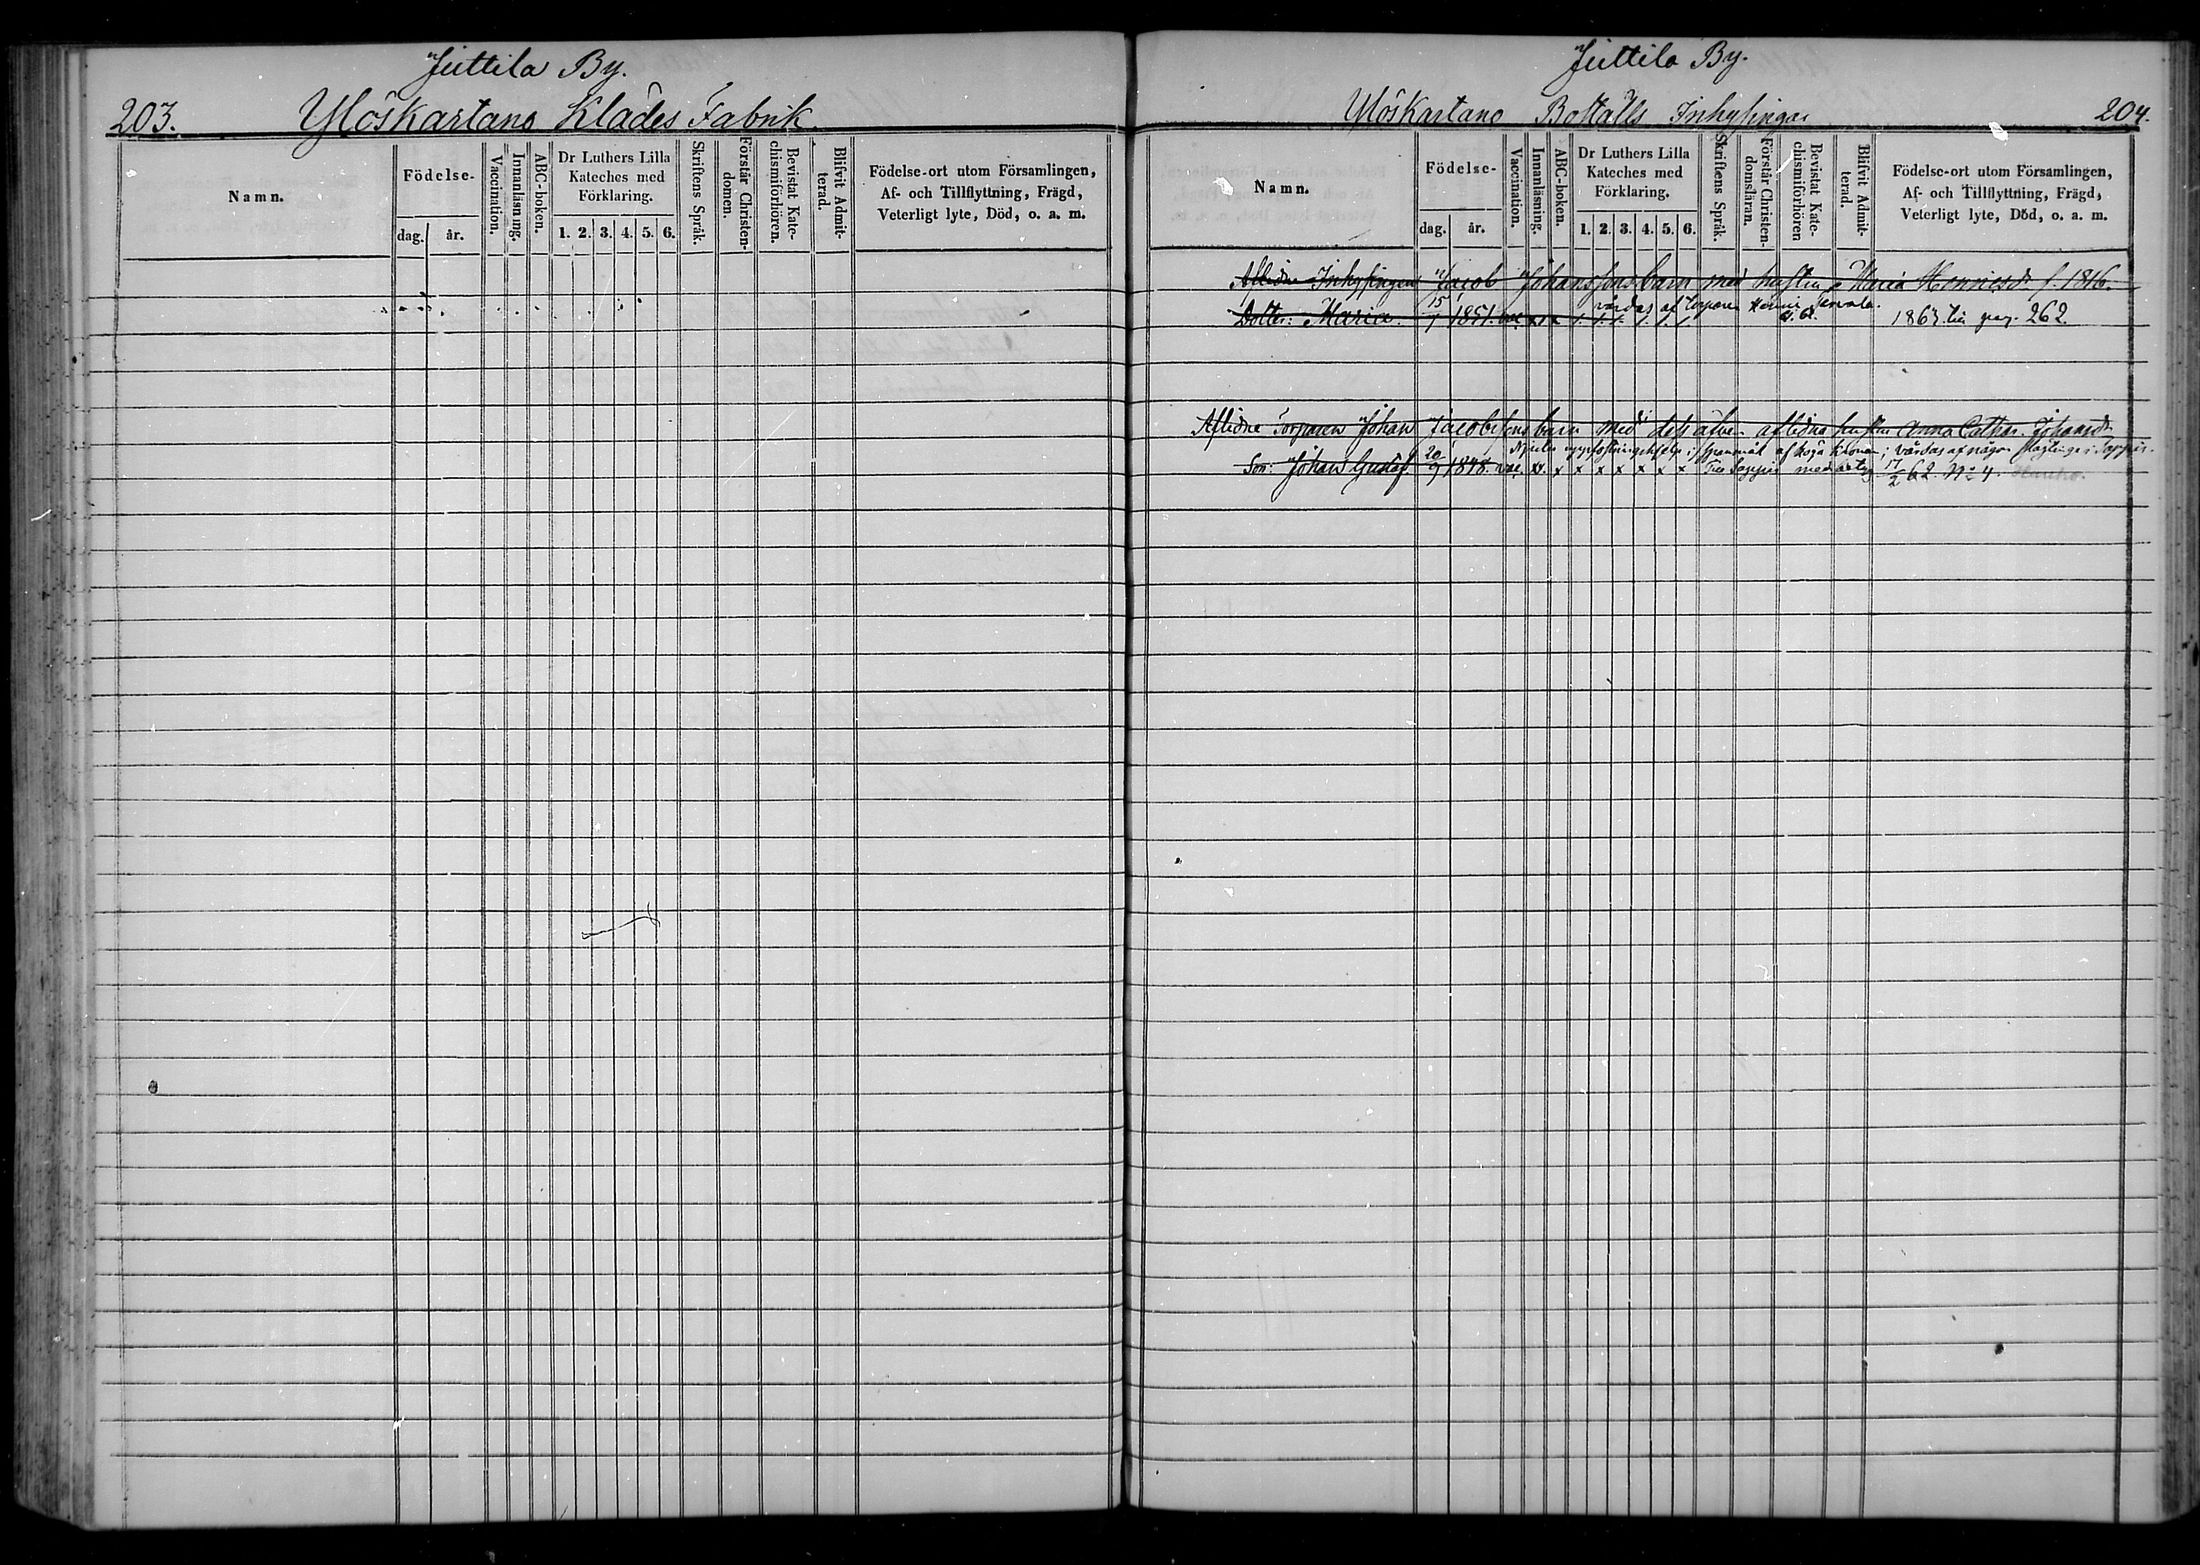 Juttila By.
203. Ylöskartano Klädes Fabrik.
Namn.
Födelse-
dag. år.
Vaccination.
Innanläsning.
ABC-boken.
Dr Luthers Lilla
Kateches med
Förklaring.
1. 2. 3. 4. 5. 6.
Skriftens Språk.
Förstår Christen-
domen.
Bevistat Kate-
chismiförhören.
Blifvit Admit-
terad.
Födelse-ort utom Församlingen,
Af- och Tillflyttning, Frägd,
Veterligt lyte, Död, o. a. m.
Juttila By.
Ylöskartano Boställs Inhysingar 204.
Namn.
Födelse-
dag. år.
Vaccination.
Innanläsning.
ABC-boken.
Dr Luthers Lilla
Kateches med
Förklaring.
1. 2. 3. 4. 5. 6.
Skriftens Språk.
Förstår Christen-
domsläran.
Bevistat Kate-
chismiförhören
Blifvit Admit-
terad.
Födelse-ort utom Församlingen,
Af- och Tillflyttning, Frägd,
Veterligt lyte, Död, o. a. m.
Aflidne Inhysingen Jacob Johanssons barn med hustru Maria Henricsdr f. 1816.
vårdas af Torparen
Dotter: Maria. 15/1 1851. vac x x x 1863. till pag. 262.
Aflidne Torparen Johan Jacobssons barn med dess äfven aflidna hustru Anna Cathar. Johansdr
af höga Kronan; vårdas af någon
Son: Johan Gustaf 20/9 1848. vac. x x x x x x x x med betyg 17/2 62. No 4.